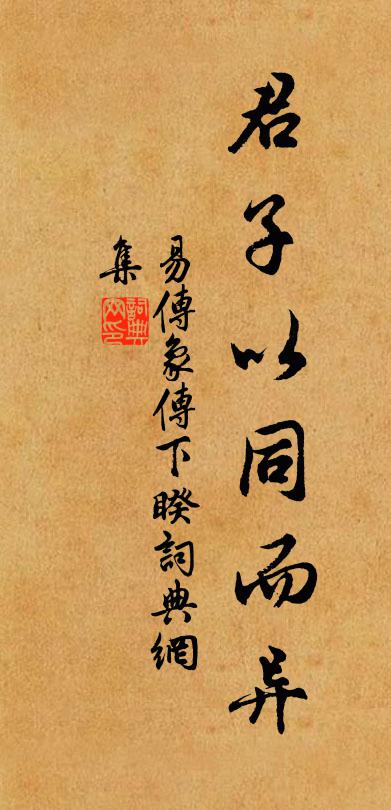 君子以同而异
易傳象傳下睽詞典網
集